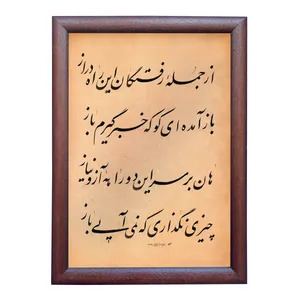 از جمله رفتگان این راه دراز
باز آمده ای کو که خبر گیرم باز
هان بر سر این دو راهه آز و نیاز
چیزی نگذاری که نمی آیی باز